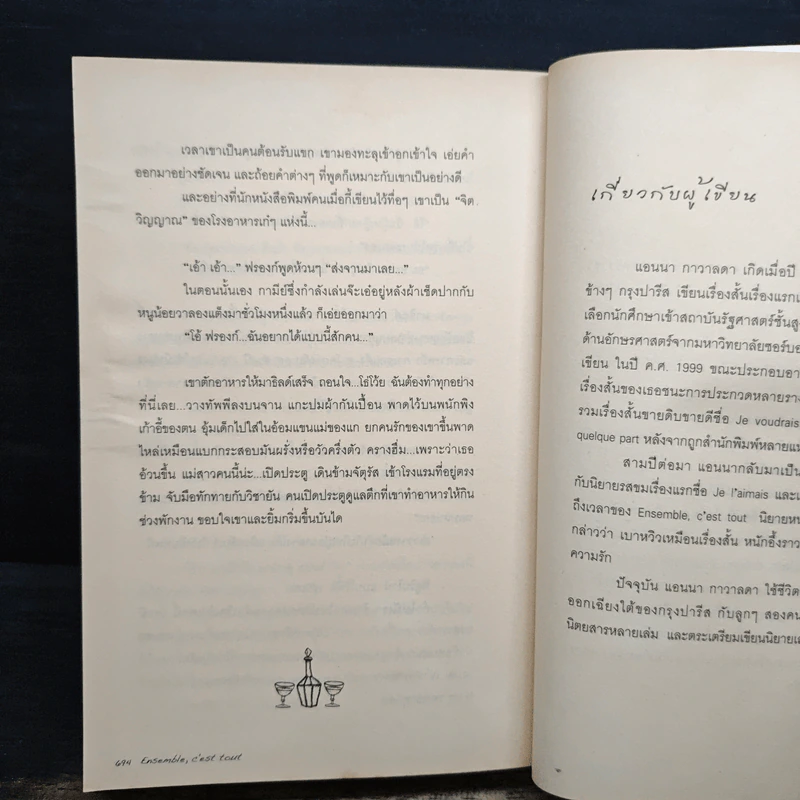 เวลาเขาเป็นคนต้อนรับแขก เขามองทะลุเข้าอกเข้าใจ เอ่ยคำ
ออกมาอย่างชัดเจน และถ้อยคำต่างๆ ที่พูดก็เหมาะกับเขาเป็นอย่างดี
และอย่างที่นักหนังสือพิมพ์คนเมื่อกี้เขียนไว้ทื่อๆ เขาเป็น “จิต
วิญญาณ” ของโรงอาหารเก๋ๆ แห่งนี้...
“เอ้า เอ้า...” ฟรองก์พูดห้วนๆ “ส่งจานมาเลย...”
ในตอนนั้นเอง กามีย์ซึ่งกำลังเล่นจ๊ะเอ๋อยู่หลังผ้าเช็ดปากกับ
หนูน้อยวาลองแต็งมาชั่วโมงหนึ่งแล้ว ก็เอ่ยออกมาว่า
“โอ้ ฟรองก์...ฉันอยากได้แบบนี้สักคน...”
เขาตักอาหารให้มาธิลด์เสร็จ ถอนใจ...โธ่โว้ย ฉันต้องทำทุกอย่าง
ที่นี่เลย...วางทัพพีลงบนจาน แกะปมผ้ากันเปื้อน พาดไว้บนพนักพิง
เก้าอี้ของตน อุ้มเด็กไปใส่ในอ้อมแขนแม่ของแก ยกคนรักของเขาขึ้นพาด
ไหล่เหมือนแบกกระสอบมันฝรั่งหรือวัวครึ่งตัว ครางฮึ่ม...เพราะว่าเธอ
อ้วนขึ้น แม่สาวคนนี้น่ะ...เปิดประตู เดินข้ามจัตุรัส เข้าโรงแรมที่อยู่ตรง
ข้าม จับมือทักทายกับวิชายัน คนเปิดประตูดูแลตึกที่เขาทำอาหารให้กิน
ช่วงพักงาน ขอบใจเขาและยิ้มกริ่มขึ้นบันได
694 Ensemble, c'est tout
เกี่ยวกับผู้เขียน
แอนนา กาวาลดา เกิดเมื่อปี
ข้างๆ กรุงปารีส เขียนเรื่องสั้นเรื่องแรก
เลือกนักศึกษาเข้าสถาบันรัฐศาสตร์ชั้นสูง
ด้านอักษรศาสตร์จากมหาวิทยาลัยซอร์บอ
เขียน ในปี ค.ศ. 1999 ขณะประกอบอา
เรื่องสั้นของเธอชนะการประกวดหลายราง
รวมเรื่องสั้นขายดิบขายดีชื่อ Je voudrais
quelque part หลังจากถูกสำนักพิมพ์หลายแห
สามปีต่อมา แอนนากลับมาเป็น
กับนิยายรสขมเรื่องแรกชื่อ Je l'aimais และ
ถึงเวลาของ Ensemble, c'est tout นิยายหน
กล่าวว่า เบาหวิวเหมือนเรื่องสั้น หนักอึ้งราว
ความรัก
ปัจจุบัน แอนนา กาวาลดา ใช้ชีวิต
ออกเฉียงใต้ของกรุงปารีส กับลูกๆ สองคน
นิตยสารหลายเล่ม และตระเตรียมเขียนนิยาย